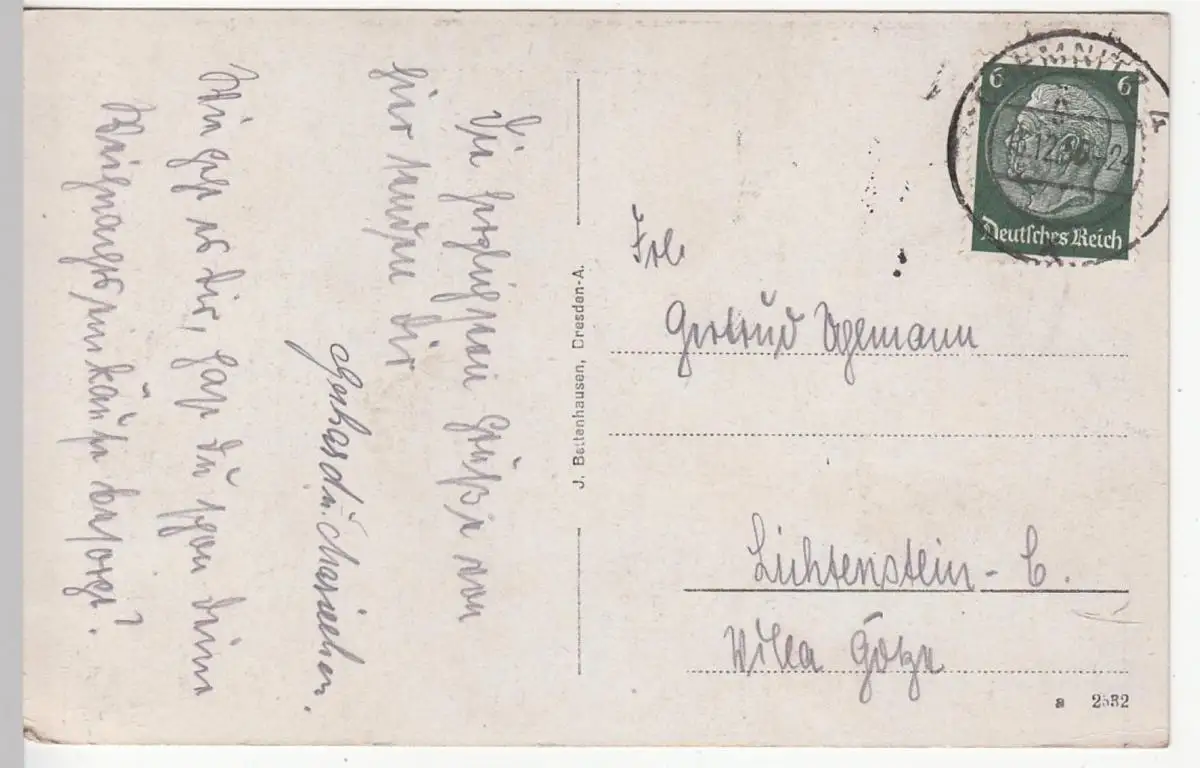 Die herzlichsten Grüße von
hier senden Dir
Gerhard u. Mariechen.
Wie geht es Dir, hast Du schon Deine
Weihnachtseinkäufe besorgt?
J. Bettenhausen, Dresden-A.
6 6
12.36-24
Deutsches Reich
Frl.
Gertrud
Lichtenstein-C.
Villa Götze
a 2532